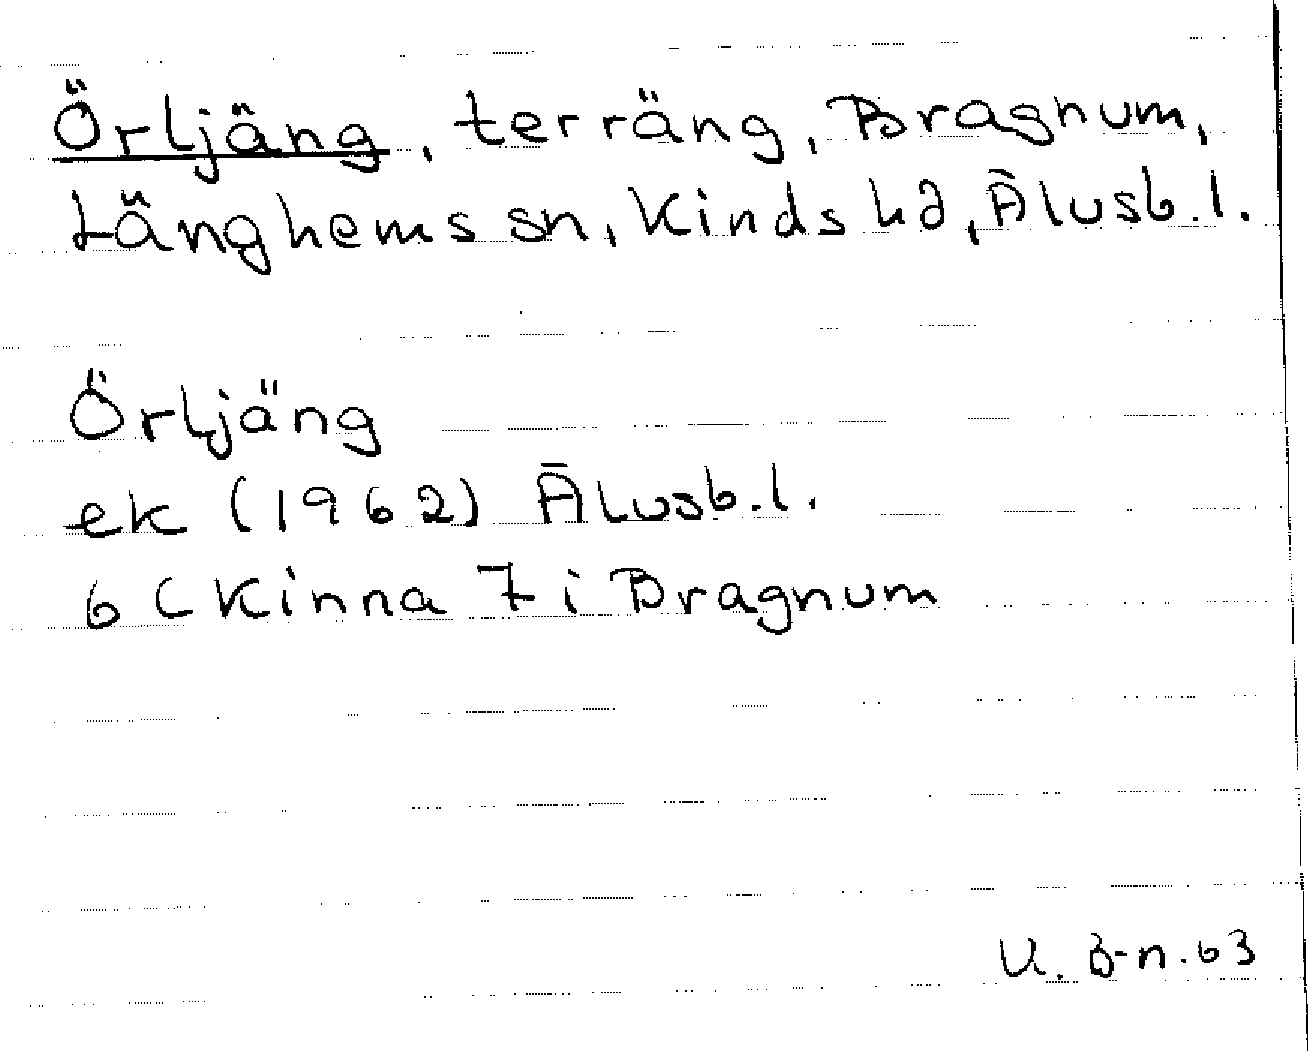 Örljäng, terräng, Bragnum,
Länghems sn, Kinds hd, Älvsb.l.
Örljäng
ek (1962) Älvsb.l.
6 C Kinna 7 i Bragnum
U. B-n. 63